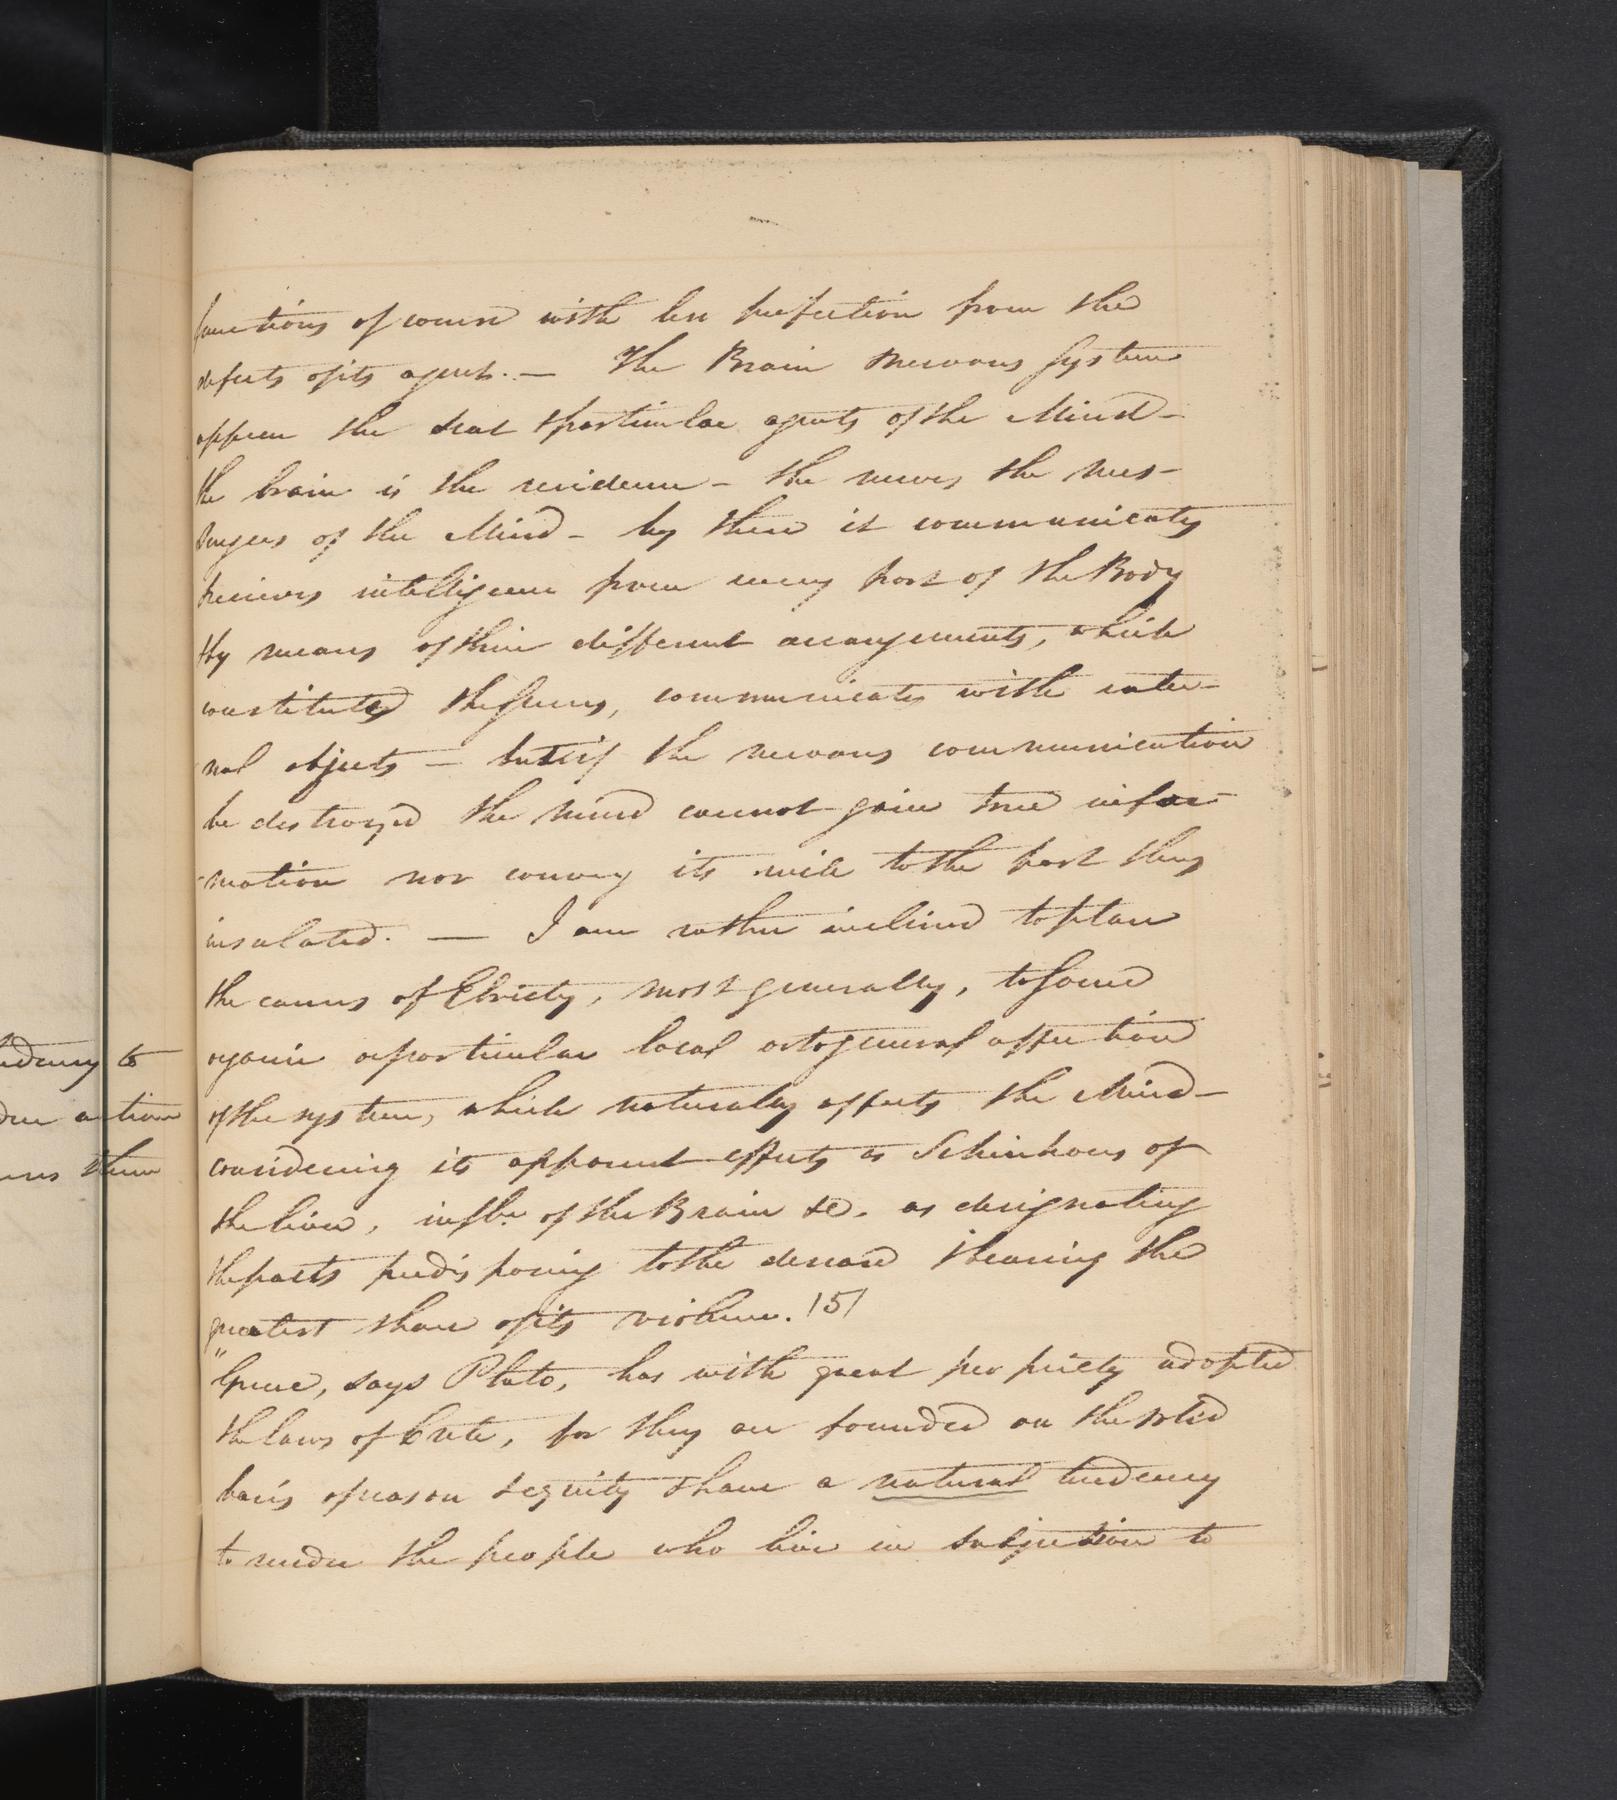 functions of course with less perfection from the
defects of its agents. — The Brain & nervous System
appear the seat & particular agents of the Mind –
the brain is the residence – the nerves the mes-
sengers of the Mind – by these it communicates
& receives intelligence from every part of the Body
& by means of their different arrangements, which
constituted the senses, communicates with exter-
nal objects – but if the nervous communication
be destroyed the mind cannot gain true infor-
mation nor convey its will to the part thus
insulated. — I am rather inclined to place
the causes of Ebriety, most generally, to some
organic or particular local or to general affection
of the system, which naturally affects the Mind –
considering its apparent effects as Schirrhous of
the liver, inflbn. of the Brain &c. as designating
the parts predisposing to the disease & bearing the
greatest share of its violence. |5|
"Greece, says Plato, has with great propriety adopted
the laws of Crete, for they are founded on the solid
basis of reason & equity & have a natural tendency
to render the people who live in subjection to
dency to
due action
them